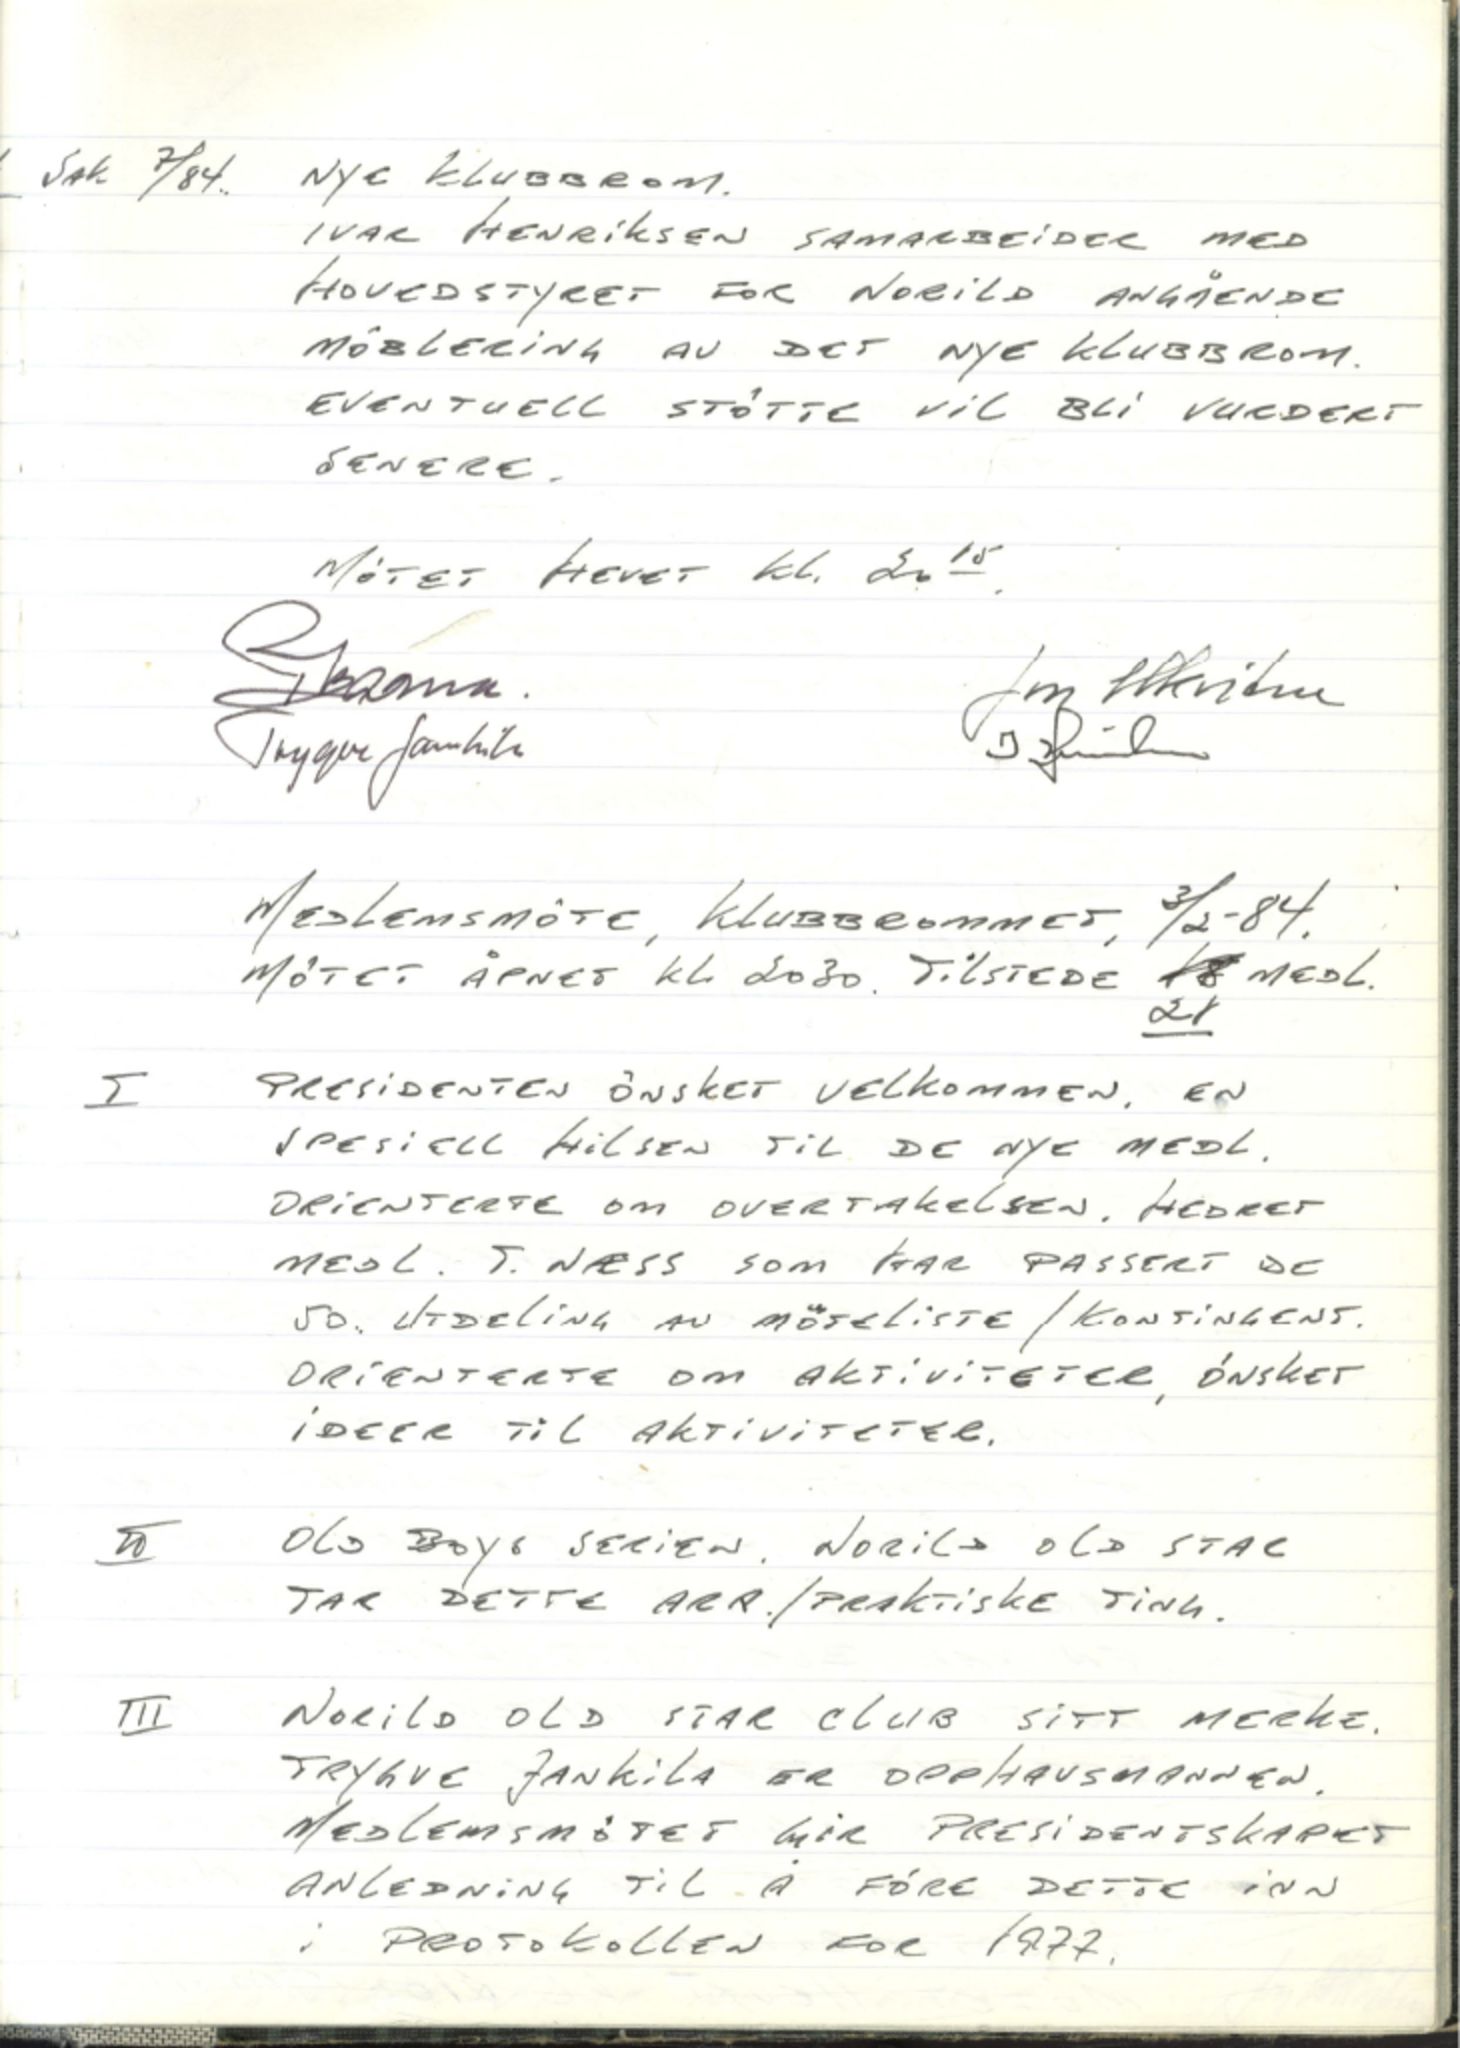 Sak 7/84. NYE KLUBBROM.
IVAR HENRIKSEN SAMARBEIDER MED
HOVEDSTYRET FOR NORILD ANGÅENDE
MÖBLERING AV DET NYE KLUBBROM.
EVENTUELL STÖTTE VIL BLI VURDERT
SENERE.
MÖTET HEVET KL. 20 15.
Trygve Jankila
MEDLEMSMÖTE, KLUBBROMMET, 3/2-84.
MÖTET ÅPNET KL 2030. TILSTEDE 18 MEDL.
21
I PRESIDENTEN ÖNSKET VELKOMMEN. EN
SPESIELL HILSEN TIL DE NYE MEDL.
ORIENTERTE OM OVERTAKELSEN. HEDRET
MEDL. T. NÆSS SOM HAR PASSERT DE
50. UTDELING AV MÖTELISTE/KONTINGENT.
ORIENTERTE OM AKTIVITETER, ÖNSKET
IDEER TIL AKTIVITETER.
II OLD BOYS SERIEN. NORILD OLD STAR
TAR DETTE ARR./PRAKTISKE TING.
III NORILD OLD STAR CLUB SITT MERKE.
TRYGVE JANKILA ER OPPHAVSMANNEN.
MEDLEMSMÖTET GIR PRESIDENTSKAPET
ANLEDNING TIL Å FÖRE DETTE INN
I PROTOKOLLEN FOR 1977.